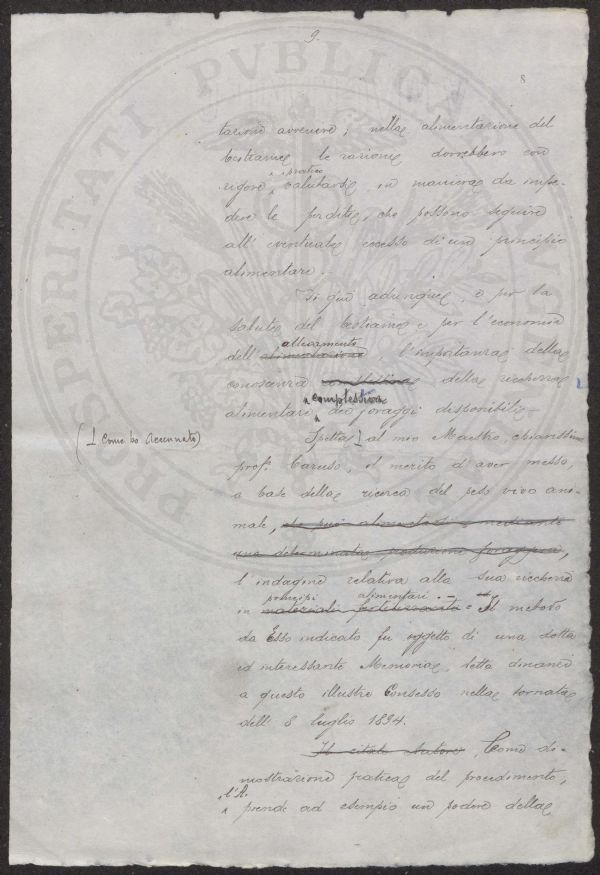 PROSPERITATI PVBLICAE AVGENDAE
9.
8
tazione avvenire; nella alimentazione del
bestiame le razioni dovrebbero con
pratico
rigore valutarsi, in maniera da impe-
dire le perdite, che possono seguire
all' eventuale eccesso di un principio
alimentare.-
Di qui adunque, e per la
salute del bestiame e per l'economia
allevamento
dell' alimentazione, l'importanza della
conoscenza complessiva della ricchezza
complessiva
alimentare dei foraggi disponibili-
(⊥ come ho accennato)
Spetta ⊥ al mio Maestro, chiarissimo
prof. Caruso, il merito d'aver messo,
a base della ricerca del peso vivo ani-
male, che può alimentarsi mediante
una determinata produzione foraggera,
l'indagine relativa alla sua ricchezza
principi alimentari.-
in materiali fertilizzanti = Il metodo
da Esso indicato fu oggetto di una dotta
ed interessante Memoria, letta dinanzi
a questo illustre Consesso nella tornata
dell' 8 luglio 1894.
Il citato Autore, Come di-
mostrazione pratica del procedimento,
l'A.
prende ad esempio un podere della